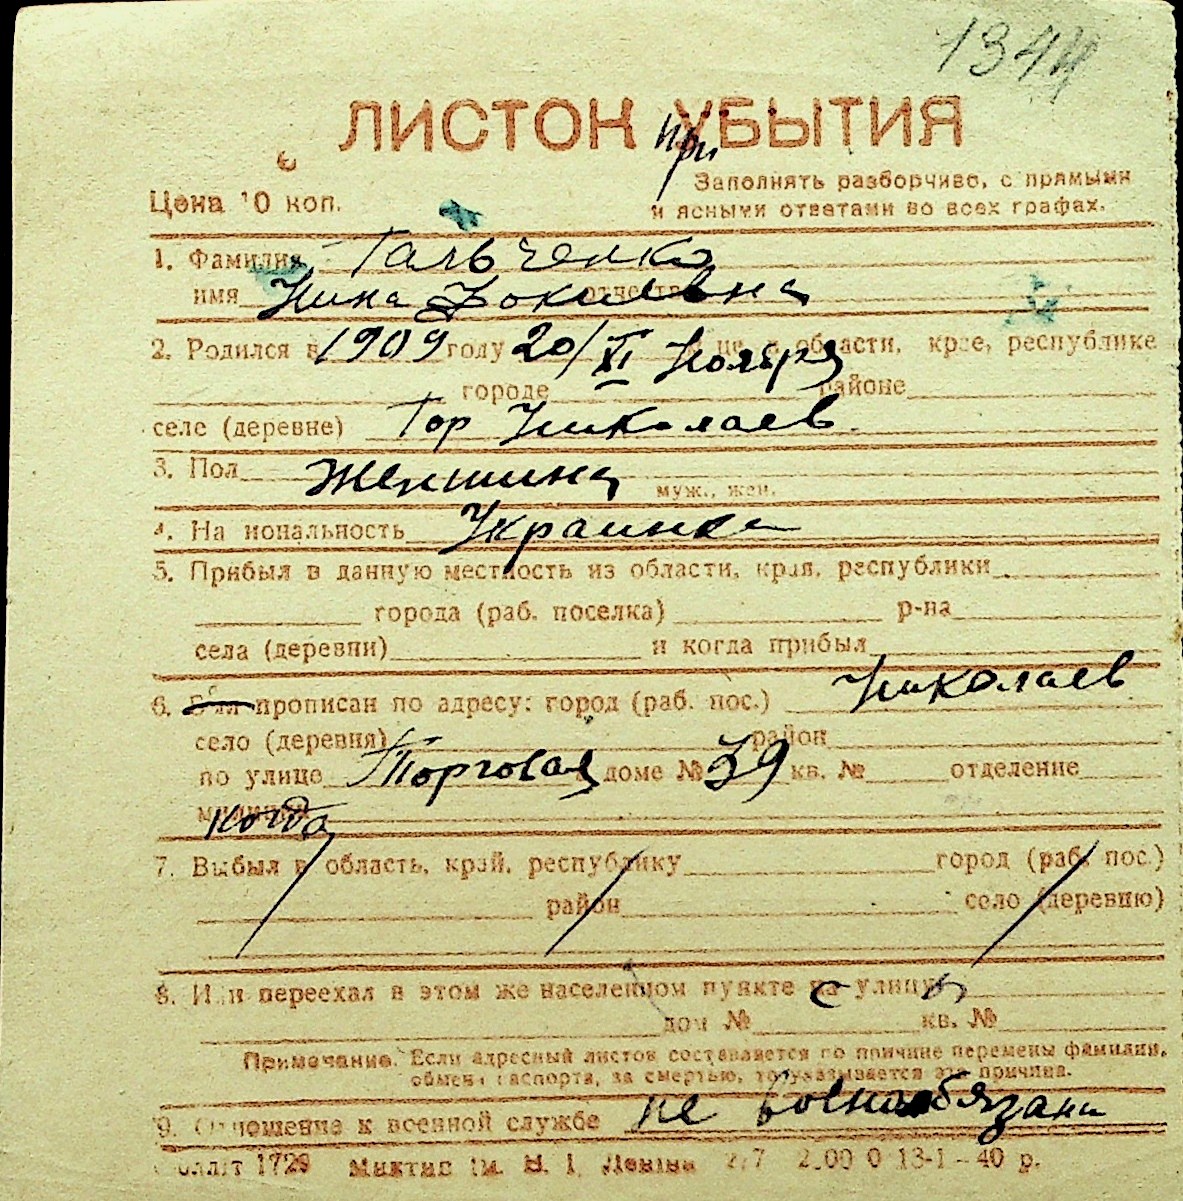 1944
ЛИСТОК УБЫТИЯ
при
Цена 10 коп.
Заполнять разборчиво, с прямыми
и ясными ответами во всех графах.
1. Фамилия Гальченко
имя Нина Фокиевна отчество
2. Родился в 1909 году 20/XI Ноября области, крае, республике
городе районе
селе (деревне) Гор Николаев
3. Пол Женщина муж., жен.
4. Национальность Украинка
5. Прибыл в данную местность из области, края, республики
города (раб. поселка) р-на
села (деревни) и когда прибыл
6. Был прописан по адресу: город (раб. пос.) Николаев
село (деревня) район
по улице Торговая доме № 39 кв. № отделение
милиции когда
7. Выбыл в область, край, республику город (раб. пос.)
район село (деревню)
8. Или переехал в этом же населенном пункте на улицу
дом № кв. №
Примечание. Если адресный листок составляется по причине перемены фамилии,
обмена паспорта, за смертью, то указывается эта причина.
9. Отношение к военной службе не военнообязана
1729 им. 13-1-40 р.